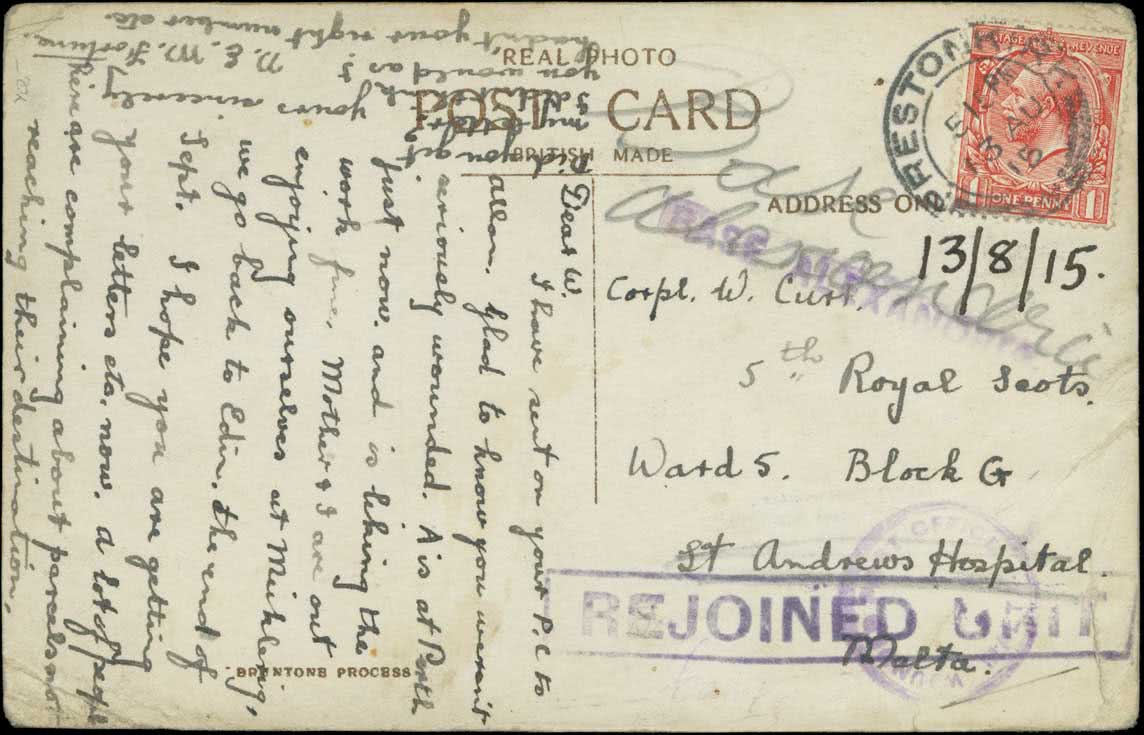 REAL PHOTO
POST CARD
BRITISH MADE
ADDRESS ONLY
BRENTONE PROCESS
POSTAGE REVENUE
ONE PENNY
PRESTONKIRK
13 AU 15
13/8/15.
Base
Alexandria
BASE ALEXANDRIA
Corpl. W. Curr.
5th Royal Scots.
Ward 5. Block G
St Andrews Hospital.
Malta.
REJOINED UNIT
Dear W.
I have sent on your P.C to
allan. Glad to know you weren't
seriously wounded. A is at Perth
just now, and is liking the
work fine. Mother & I are out
enjoying ourselves at
we go back to Edin. the end of
Sept. I hope you are getting
your letters etc. now. a lot of people
here are complaining about parcels not
reaching their destination.
Yours sincerely
D. E. M. Fortune.
Did you get
my letter?
I didn't think
you would as I
hadn't your right number etc.